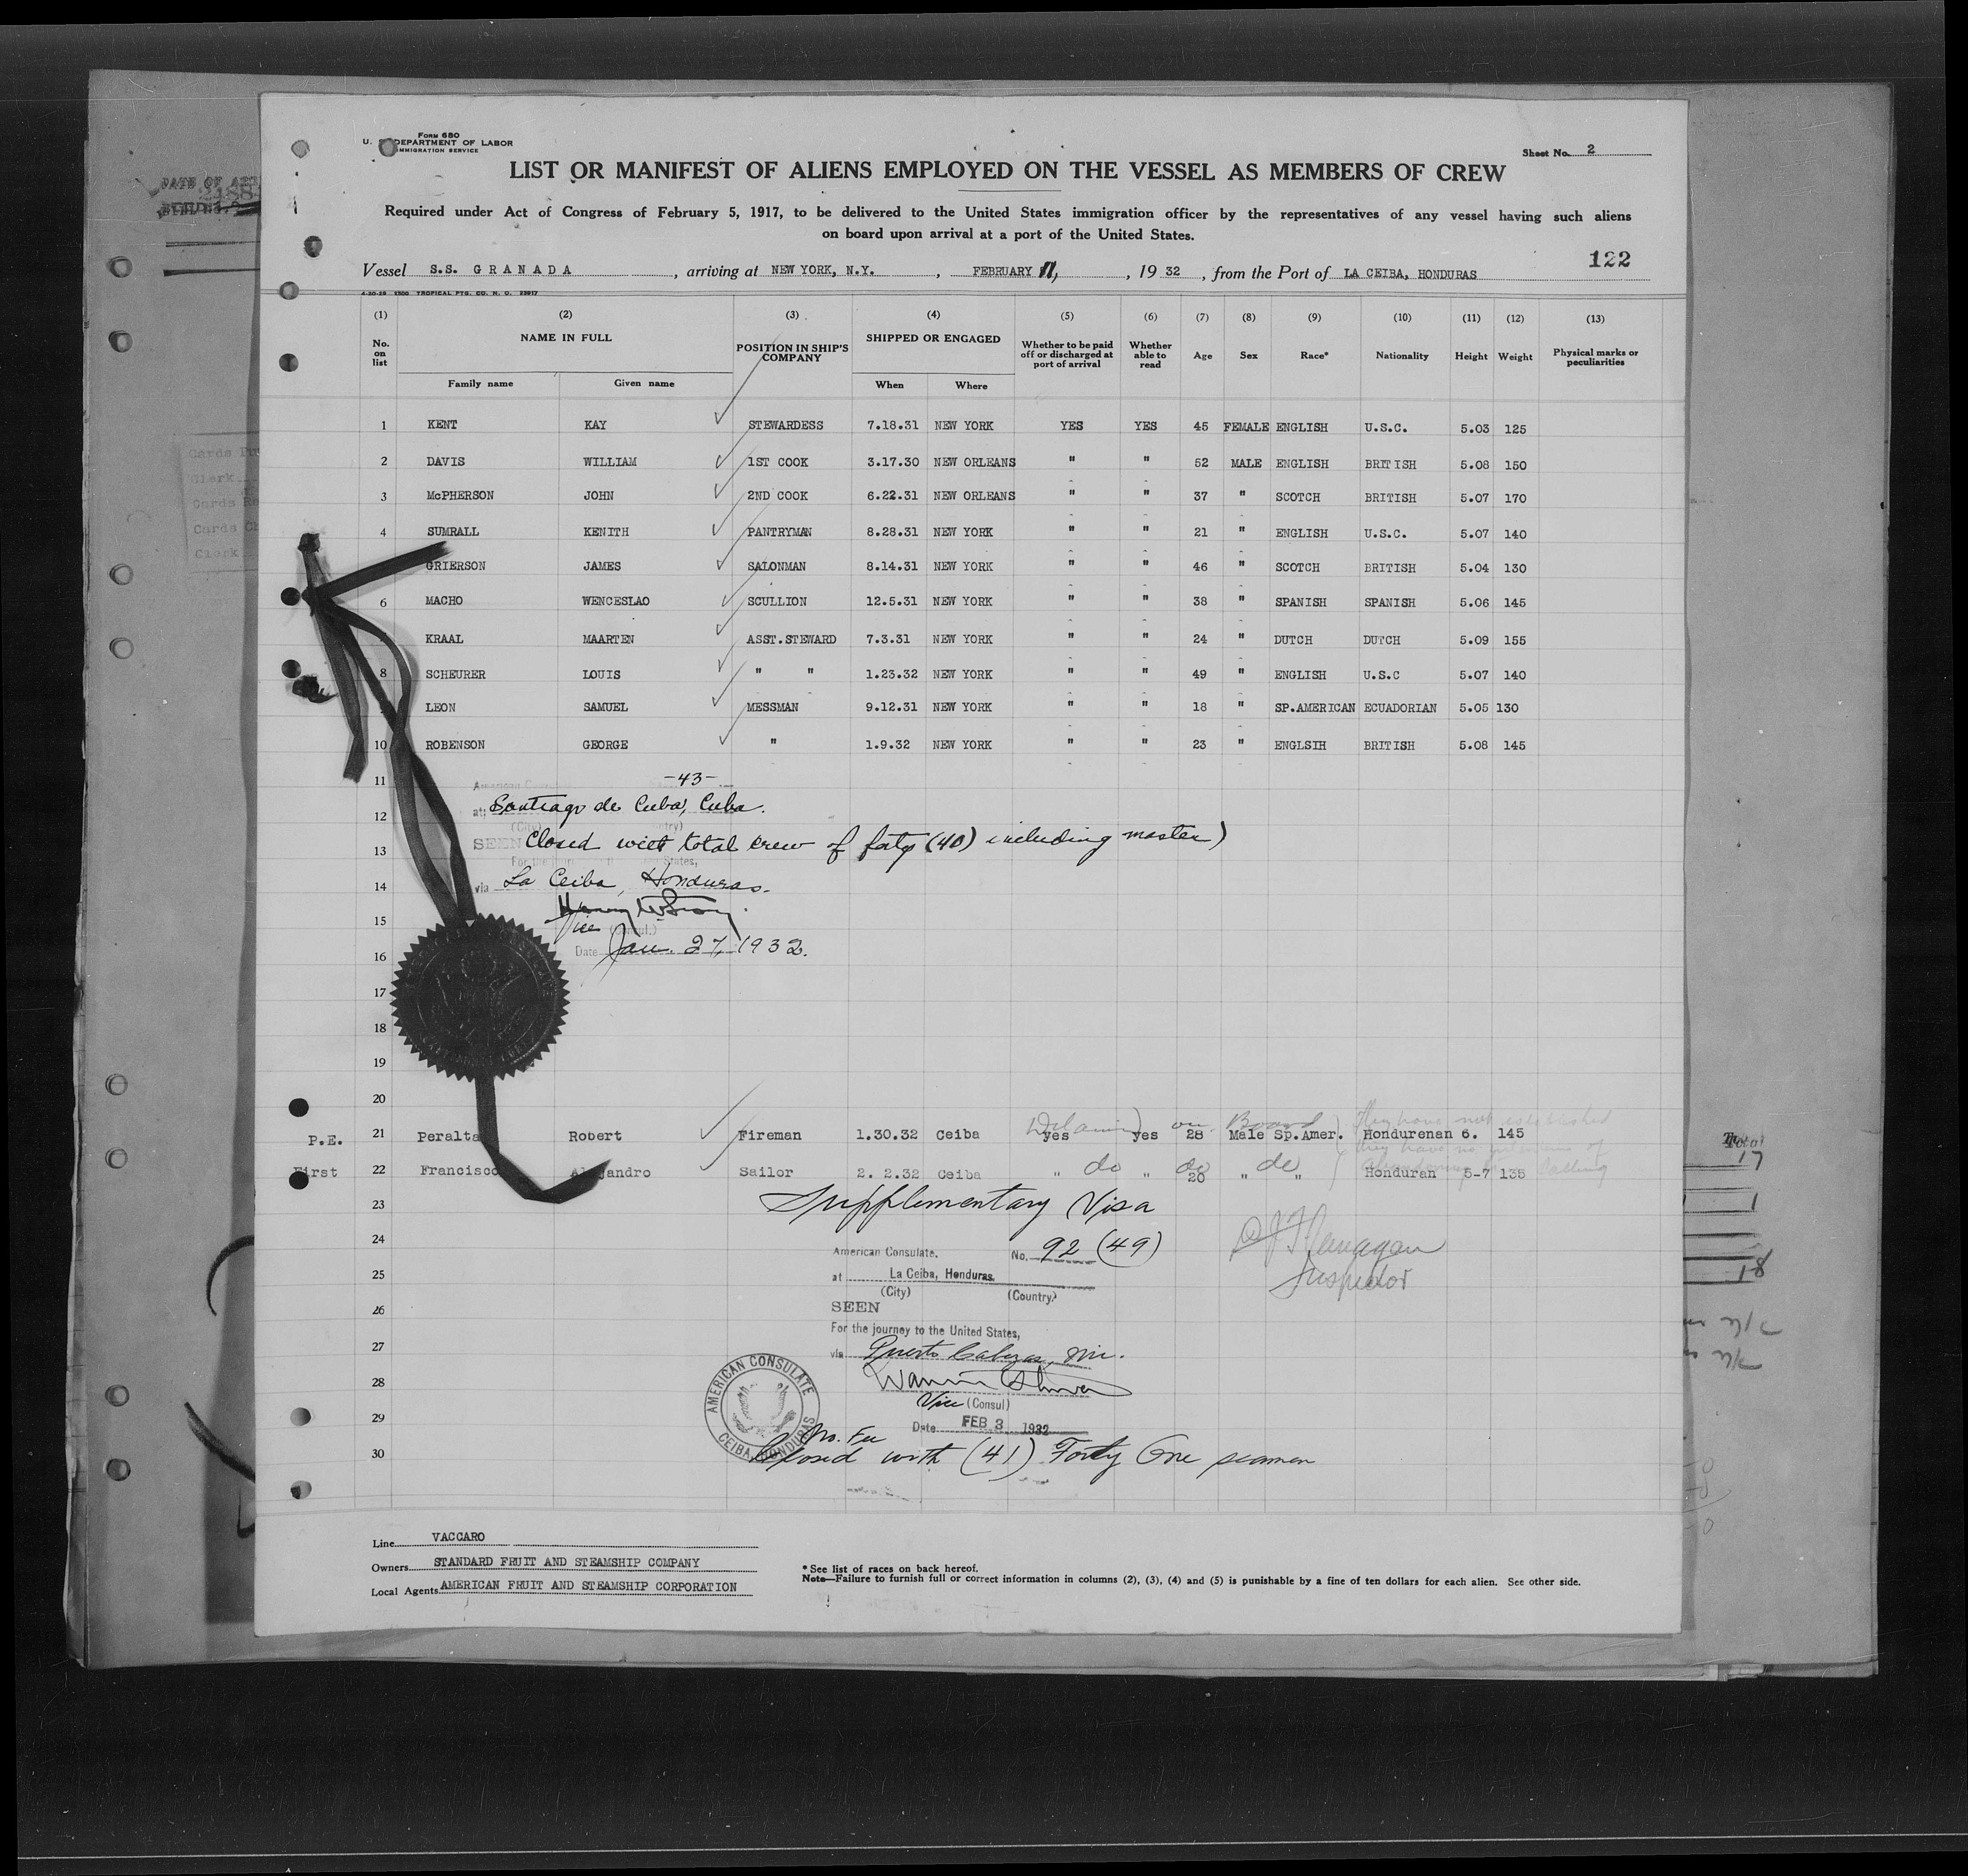 Form 680
U. S. DEPARTMENT OF LABOR
IMMIGRATION SERVICE
Sheet No. 2
LIST OR MANIFEST OF ALIENS EMPLOYED ON THE VESSEL AS MEMBERS OF CREW
Required under Act of Congress of February 5, 1917, to be delivered to the United States immigration officer by the representatives of any vessel having such aliens
on board upon arrival at a port of the United States.
122
Vessel S.S. GRANADA, arriving at NEW YORK, N.Y., FEBRUARY 11, 1932, from the Port of LA CEIBA, HONDURAS
4-30-29 1500 TROPICAL PTG. CO. N. O. 28917
(1) (2) (3) (4) (5) (6) (7) (8) (9) (10) (11) (12) (13)
No. on list NAME IN FULL POSITION IN SHIP'S COMPANY SHIPPED OR ENGAGED Whether to be paid off or discharged at port of arrival Whether able to read Age Sex Race* Nationality Height Weight Physical marks or peculiarities
Family name Given name When Where
1 KENT KAY STEWARDESS 7.18.31 NEW YORK YES YES 45 FEMALE ENGLISH U.S.C. 5.03 125
2 DAVIS WILLIAM 1ST COOK 3.17.30 NEW ORLEANS " " 52 MALE ENGLISH BRITISH 5.08 150
3 McPHERSON JOHN 2ND COOK 6.22.31 NEW ORLEANS " " 37 " SCOTCH BRITISH 5.07 170
4 SUMRALL KENITH PANTRYMAN 8.28.31 NEW YORK " " 21 " ENGLISH U.S.C. 5.07 140
GRIERSON JAMES SALONMAN 8.14.31 NEW YORK " " 46 " SCOTCH BRITISH 5.04 130
6 MACHO WENCESLAO SCULLION 12.5.31 NEW YORK " " 38 " SPANISH SPANISH 5.06 145
KRAAL MAARTEN ASST.STEWARD 7.3.31 NEW YORK " " 24 " DUTCH DUTCH 5.09 155
8 SCHEURER LOUIS " " 1.23.32 NEW YORK " " 49 " ENGLISH U.S.C 5.07 140
LEON SAMUEL MESSMAN 9.12.31 NEW YORK " " 18 " SP.AMERICAN ECUADORIAN 5.05 130
10 ROBENSON GEORGE " 1.9.32 NEW YORK " " 23 " ENGLSIH BRITISH 5.08 145
11 -43-
12 at Santiago de Cuba, Cuba.
13 SEEN Closed with total crew of forty (40) including master)
14 via La Ceiba, Honduras.
15 Vice
16 Date Jan. 27, 1932.
17
18
19
20
P.E. 21 Peralta Robert Fireman 1.30.32 Ceiba yes yes 28 Male Sp.Amer. Hondurenan 6. 145
First 22 Francisco Alejandro Sailor 2. 2.32 Ceiba " do " do 20 " do " Honduran 5-7 135
23 Supplementary Visa
24 American Consulate. No. 92 (49)
25 at La Ceiba, Honduras.
Inspector
(City) (Country)
26 SEEN
For the journey to the United States,
27 via Puerto Cabezas, Nic.
28
Vice (Consul)
29 Date FEB 3 1932
AMERICAN CONSULATE
CEIBA HONDURAS
No. Fee
30 Closed with (41) Forty One seamen
Line VACCARO
Owners STANDARD FRUIT AND STEAMSHIP COMPANY
Local Agents AMERICAN FRUIT AND STEAMSHIP CORPORATION
* See list of races on back hereof.
Note—Failure to furnish full or correct information in columns (2), (3), (4) and (5) is punishable by a fine of ten dollars for each alien. See other side.
Total
17
1
18